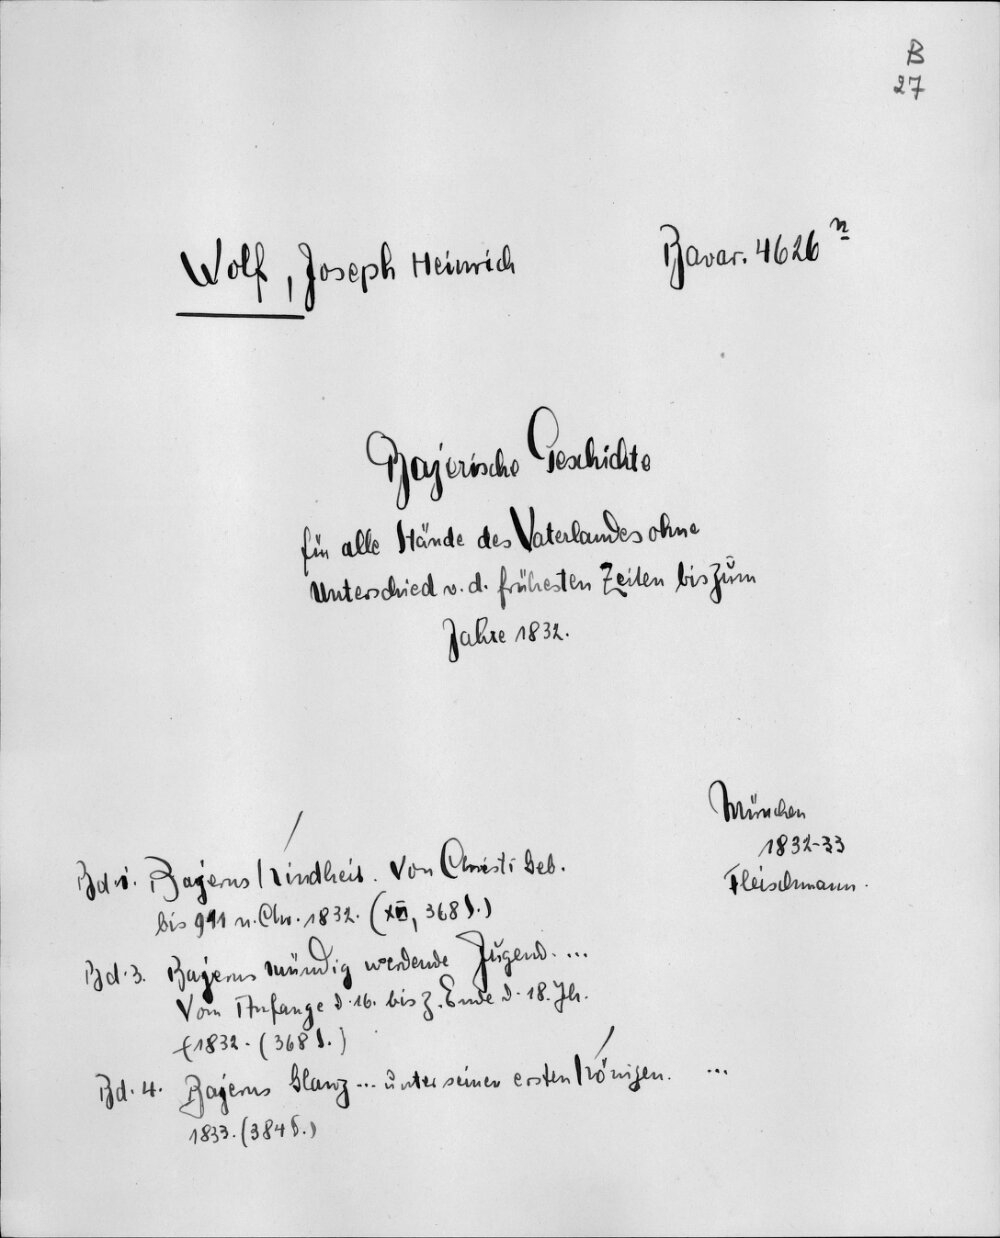 B
27
Wolf, Joseph Heinrich Bavar. 4626 n
Bajerische Geschichte
für alle Stände des Vaterlandes ohne
Unterschied v. d. frühesten Zeiten bis zum
Jahre 1832.
München
1832-33
Fleischmann.
Bd. 1. Bajerns Kindheit. Von Christi Geb.
bis 911 n. Chr. 1832. (XII, 368 S.)
Bd. 3. Bajerns mündig werdende Jugend. ...
Vom Anfange d. 16. bis z. Ende d. 18. Jh.
1832. (368 S.)
Bd. 4. Bajerns Glanz ... unter seinen ersten Königen. ...
1833. (384 S.)